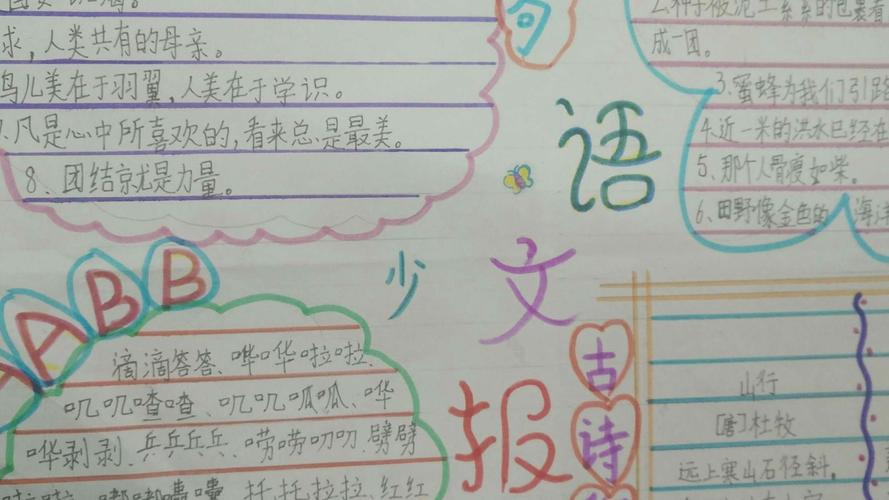 求,人类共有的母亲。
鸟儿美在于羽翼,人美在于学识。
7.凡是心中所喜欢的,看来总是最美。
8、团结就是力量。
句
语
文
少
报
成一团。
3.蜜蜂为我们引路
4.近一米的洪水已经在
5、那个人骨瘦如柴。
6、田野像金色的 海洋
AABB
滴滴答答、哗哗啦啦、
叽叽喳喳、叽叽呱呱、哗
哗剥剥、乒乒乓乓、唠唠叨叨、劈劈
古
诗
山行
[唐]杜牧
远上寒山石径斜,